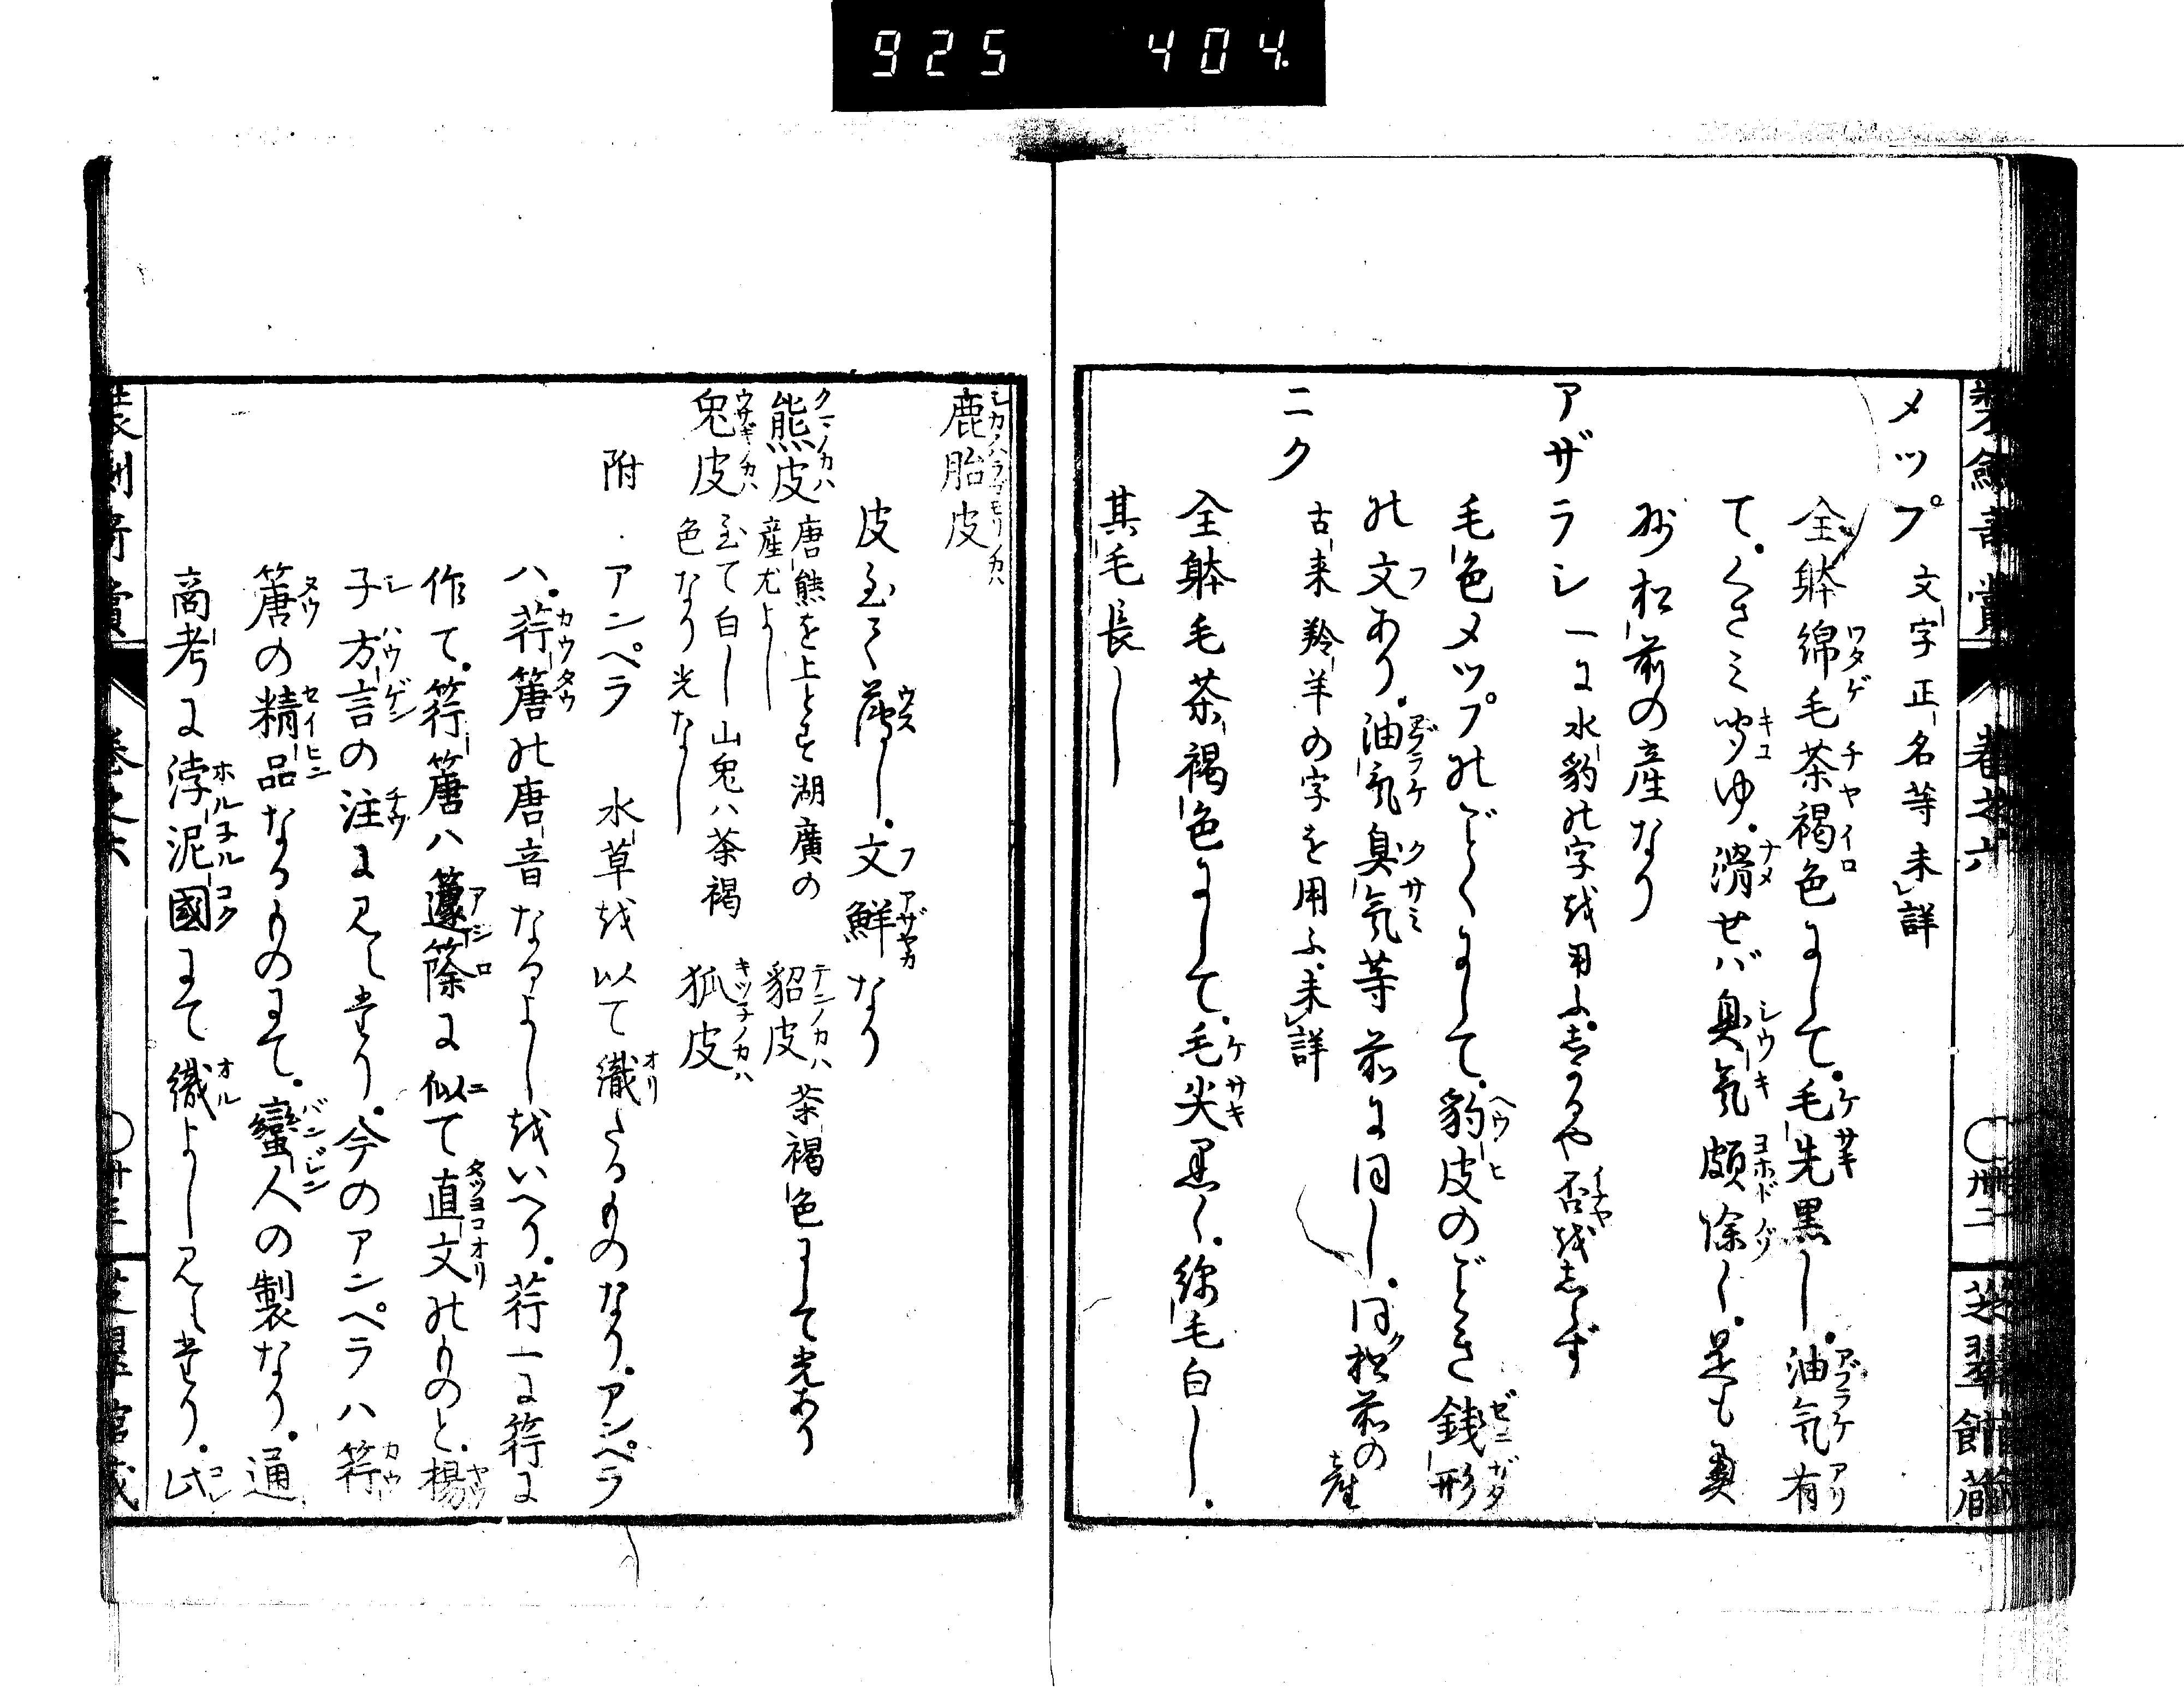 925 404
メツプ 文字正名等未詳
全躰綿毛茶褐色にして。毛先黒し。油気有
て。くさミ聞ゆ。滑せバ臭気頗除く。是も奥
州松前の産なり
アザラシ 一に水豹の字を用ふ。当るや否をしらず
毛色メツプのごとくにして。豹皮のごとき銭形
の文あり。油気臭気等前に同し。同ク松前の産
ニク 古来羚羊の字を用ふ。未詳
全躰毛茶褐色にして。毛尖黒く。綿毛白し。
其毛長し
卷之六 〇卅二 芝翠館蔵
鹿胎皮
皮至て薄し。文鮮なり
熊皮 唐熊を上とす湖廣の産尤よし 貂皮 茶褐色にして光あり
兎皮 至て白し山兎ハ茶褐色なり光なし 狐皮
附 アンペラ 水草を以て織たるものなり。アンペラ
ハ。荇䉎の唐音なるよしをいへり。荇一に筕に
作て。筕䉎ハ籧篨に似て直文のものと。楊
子方言の注に見へたり。今のアンペラハ筕
䉎の精品なるものにて。蠻人の製なり。通
商考に浡泥國にて織よし見へたり。此